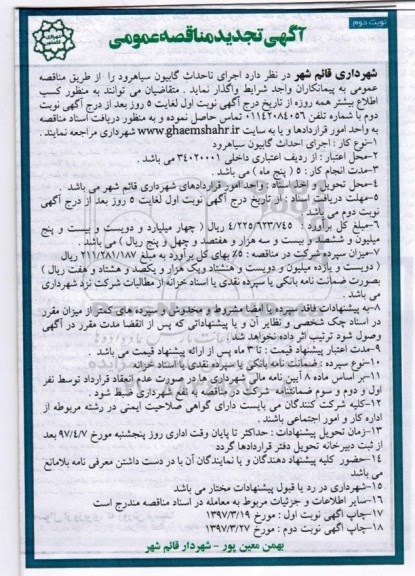 نوبت دوم
آگهی تجدید مناقصه عمومی
شهرداری قائم شهر در نظر دارد اجرای تاحداث گابیون سیاهرود را از طریق مناقصه
عمومی به پیمانکاران واجد شرایط واگذار نماید . متقاضیان می توانند به منظور کسب
اطلاع بیشتر همه روزه از تاریخ درج آگهی نوبت اول لغایت ۵ روز بعد از درج آگهی نوبت
دوم با شماره تلفن ۰۱۱۴۲۰۸۴۰۵۶ تماس حاصل نموده و به منظور دریافت اسناد مناقصه
به واحد امور قراردادها و یا به سایت www.ghaemshahr.ir شهرداری مراجعه نمایند .
۱-نوع کار : اجرای احداث گابیون سیاهرود
۲-محل اعتبار : از ردیف اعتباری داخلی ۳۴۰۲۰۰۰۱ می باشد .
۳-مدت انجام کار : ۵ ( پنج ماه ) می باشد .
۴-محل تحویل و اخذ اسناد : واحد امور قراردادهای شهرداری قائم شهر می باشد .
۵-مهلت دریافت اسناد : از تاریخ درج آگهی نوبت اول لغایت ۵ روز بعد از درج آگهی
نوبت دوم می باشد .
۶-مبلغ کل برآورد : ۴/۲۲۵/۶۲۳/۷۴۵ ریال ( چهار میلیارد و دویست و بیست و پنج
میلیون و ششصد و بیست و سه هزار و هفتصد و چهل و پنج ریال ) می باشد .
۷-میزان سپرده شرکت در مناقصه : ۵٪ بهای کل برآورد به مبلغ ۲۱۱/۲۸۱/۱۸۷ ریال
( دویست و یازده میلیون و دویست و هشتاد ویک هزار و یکصد و هشتاد و هفت ریال )
بصورت ضمانت نامه بانکی یا سپرده نقدی یا اسناد خزانه از مطالبات شرکت نزد شهرداری
می باشد .
۸-به پیشنهادات فاقد سپرده یا امضا مشروط و مخدوش و سپرده های کمتر از میزان مقرر
در اسناد چک شخصی و نظایر آن و یا پیشنهاداتی که پس از انقضا مدت مقرر در آگهی
وصول شود ترتیب اثر داده نخواهد شد .
۹-مدت اعتبار پیشنهاد قیمت : تا ۳ ماه پس از ارائه پیشنهاد قیمت می باشد .
۱۰-نوع سپرده : ضمانت نامه بانکی یا سپرده نقدی یا اسناد خزانه
۱۱-بر اساس ماده ۸ آیین نامه مالی شهرداری ها در صورت عدم انعقاد قرارداد توسط نفر
اول و دوم و سوم ضمانتنامه شرکت در مناقصه به نفع شهرداری ضبط شود .
۱۲-کلیه شرکت کنندگان می بایست دارای گواهی صلاحیت ایمنی در رشته مربوطه از
اداره کار و امور اجتماعی باشند .
۱۳-زمان تحویل پیشنهادات : حداکثر تا پایان وقت اداری روز پنجشنبه مورخ ۹۷/۴/۷ بعد
از ثبت دبیرخانه تحویل دفتر قراردادها گردد
۱۴-حضور کلیه پیشنهاد دهندگان و یا نمایندگان آن با در دست داشتن معرفی نامه بلامانع
می باشد
۱۵-شهرداری در رد یا قبول پیشنهادات مختار می باشد
۱۶-سایر اطلاعات و جزئیات مربوط به معامله در اسناد مناقصه مندرج است
۱۷-چاپ آگهی نوبت اول : مورخ ۱۳۹۷/۳/۱۹
۱۸-چاپ آگهی نوبت دوم : مورخ ۱۳۹۷/۳/۲۷
بهمن معین پور - شهردار قائم شهر